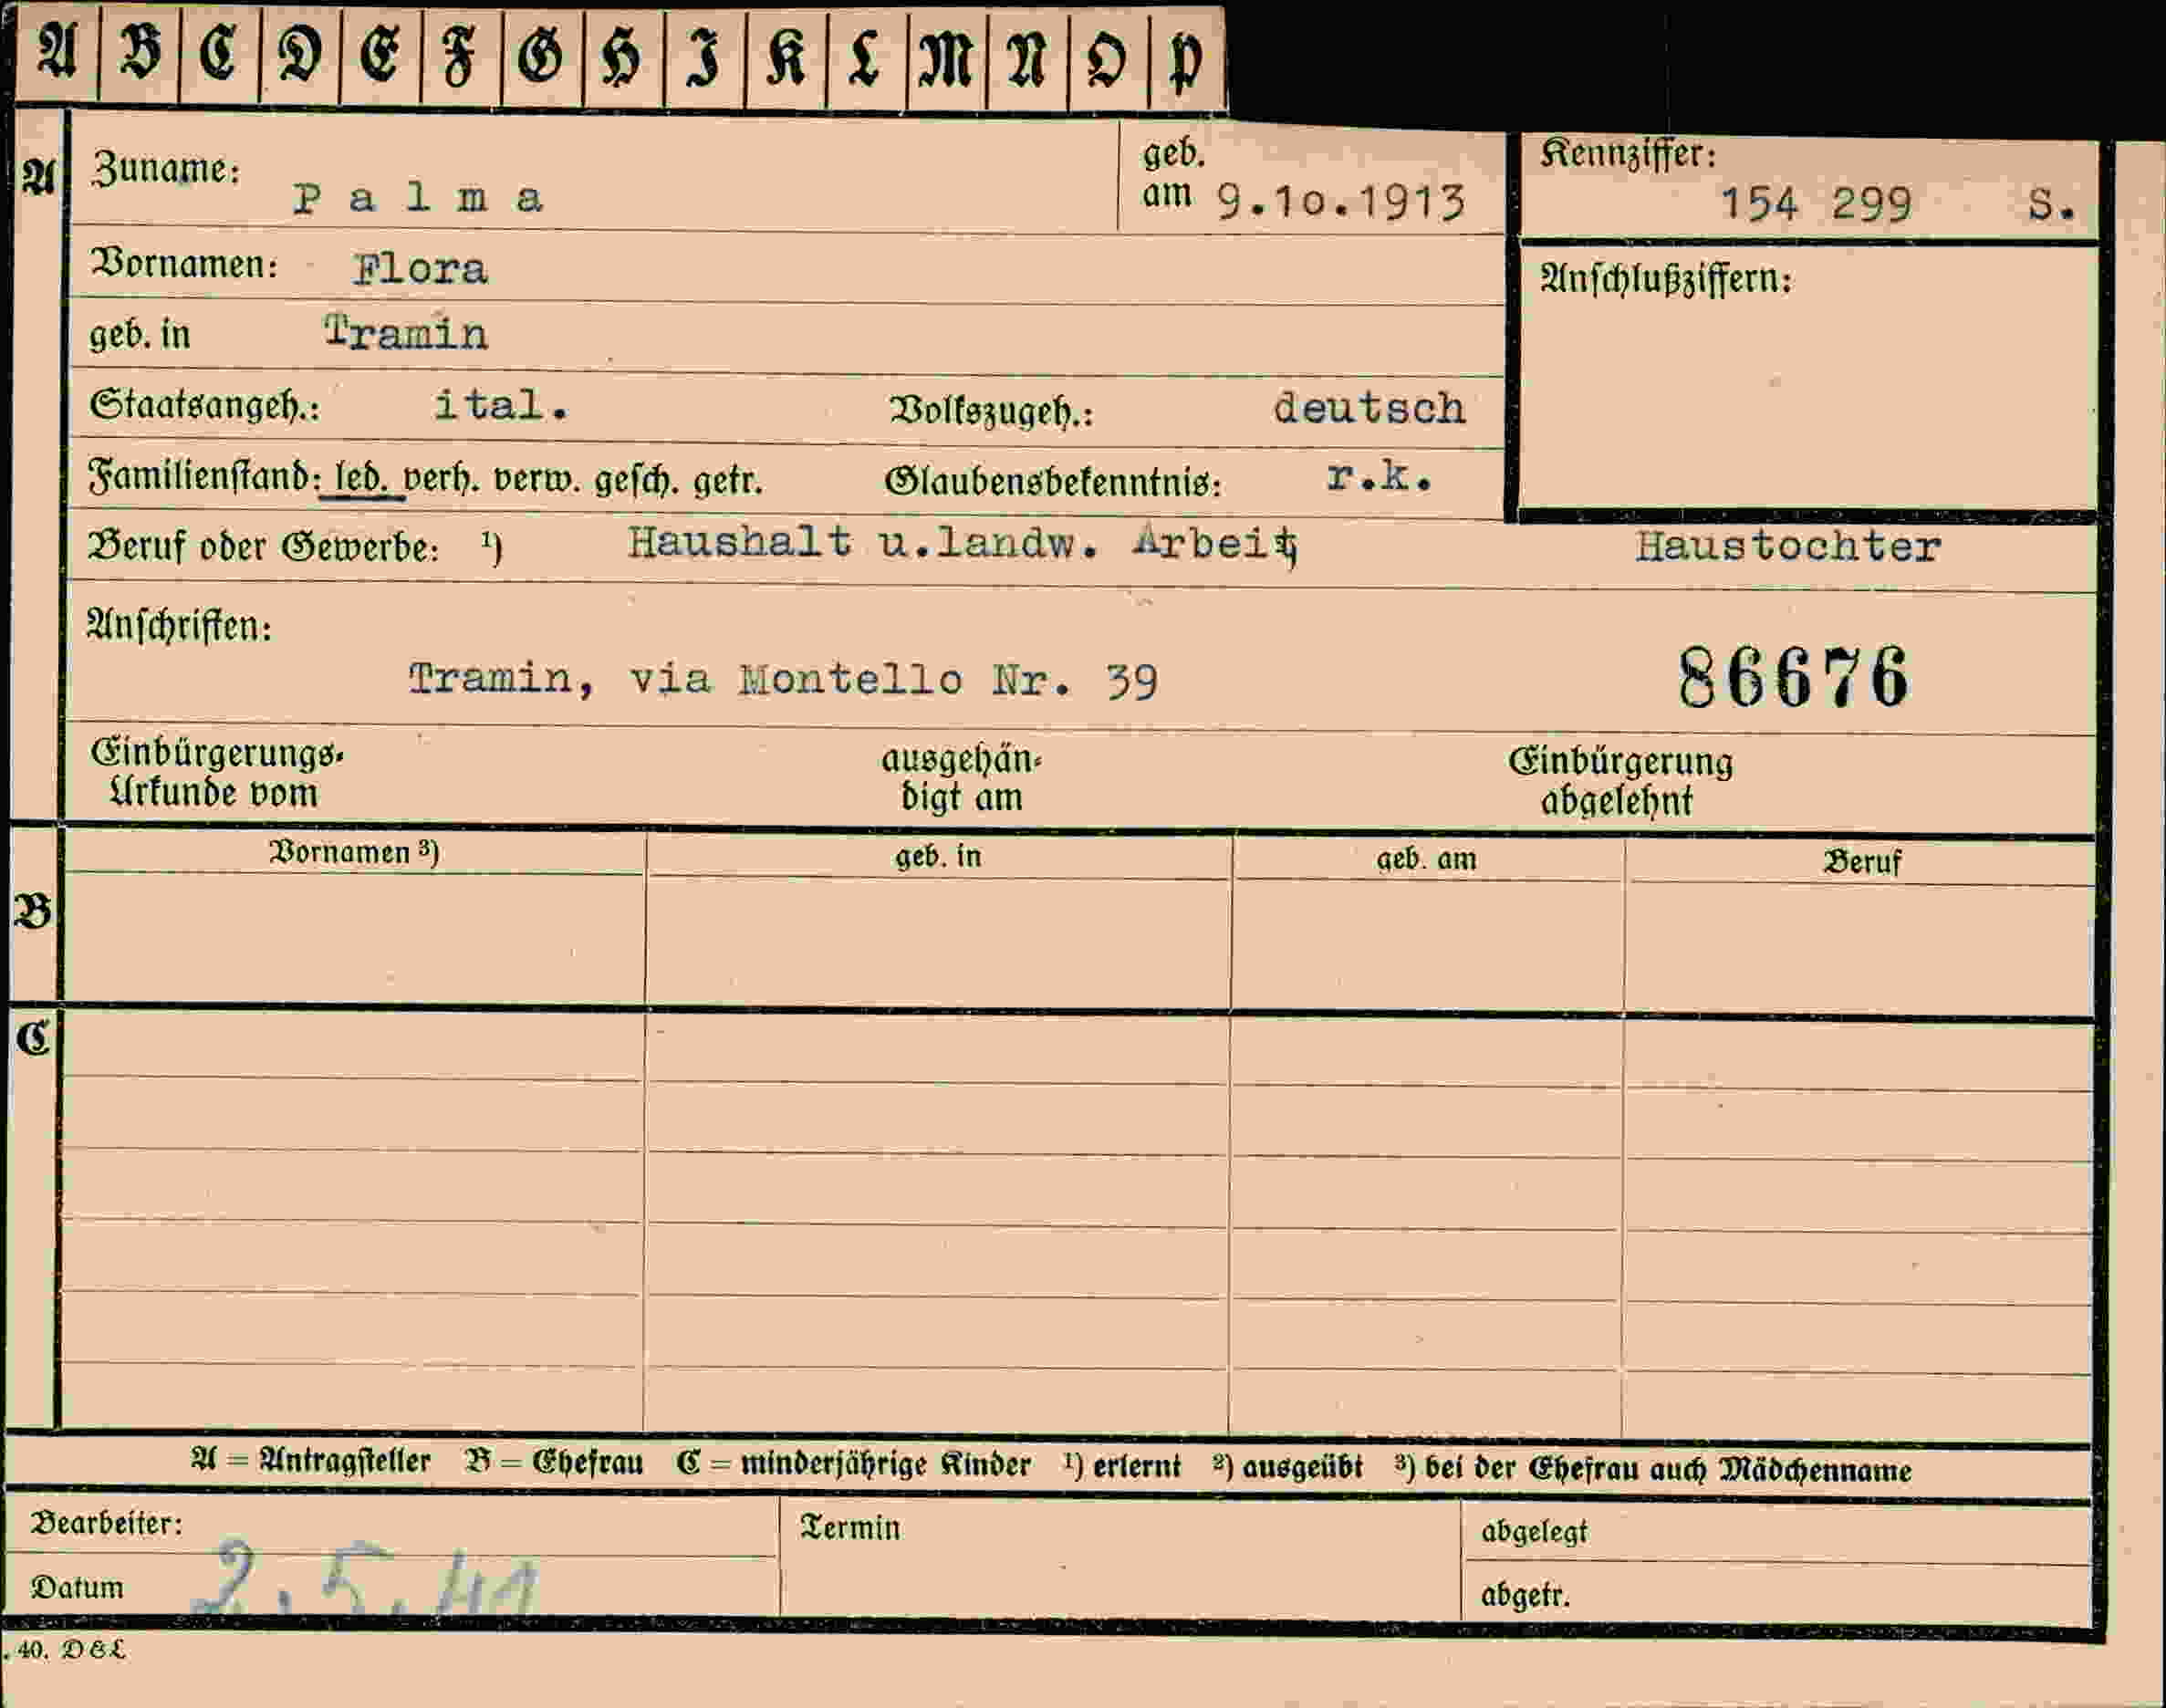 A B C D E F G H I K L M N O P
A Zuname: Palma geb. am 9.10.1913 Kennziffer: 154 299 S.
Vornamen: Flora Anschlußziffern:
geb. in Tramin
Staatsangeh.: ital. Volkszugeh.: deutsch
Familienstand: led. verh. verw. gesch. getr. Glaubensbekenntnis: r.k.
Beruf oder Gewerbe: ¹) Haushalt u.landw. Arbeit Haustochter
Anschriften:
Tramin, via Montello Nr. 39 86676
Einbürgerungs- ausgehän- Einbürgerung
Urkunde vom digt am abgelehnt
Vornamen ³) geb. in geb. am Beruf
B
C
A = Antragsteller B = Ehefrau C = minderjährige Kinder ¹) erlernt ²) ausgeübt ³) bei der Ehefrau auch Mädchenname
Bearbeiter: Termin abgelegt
Datum 2.5.41 abgetr.
. 40. D&L